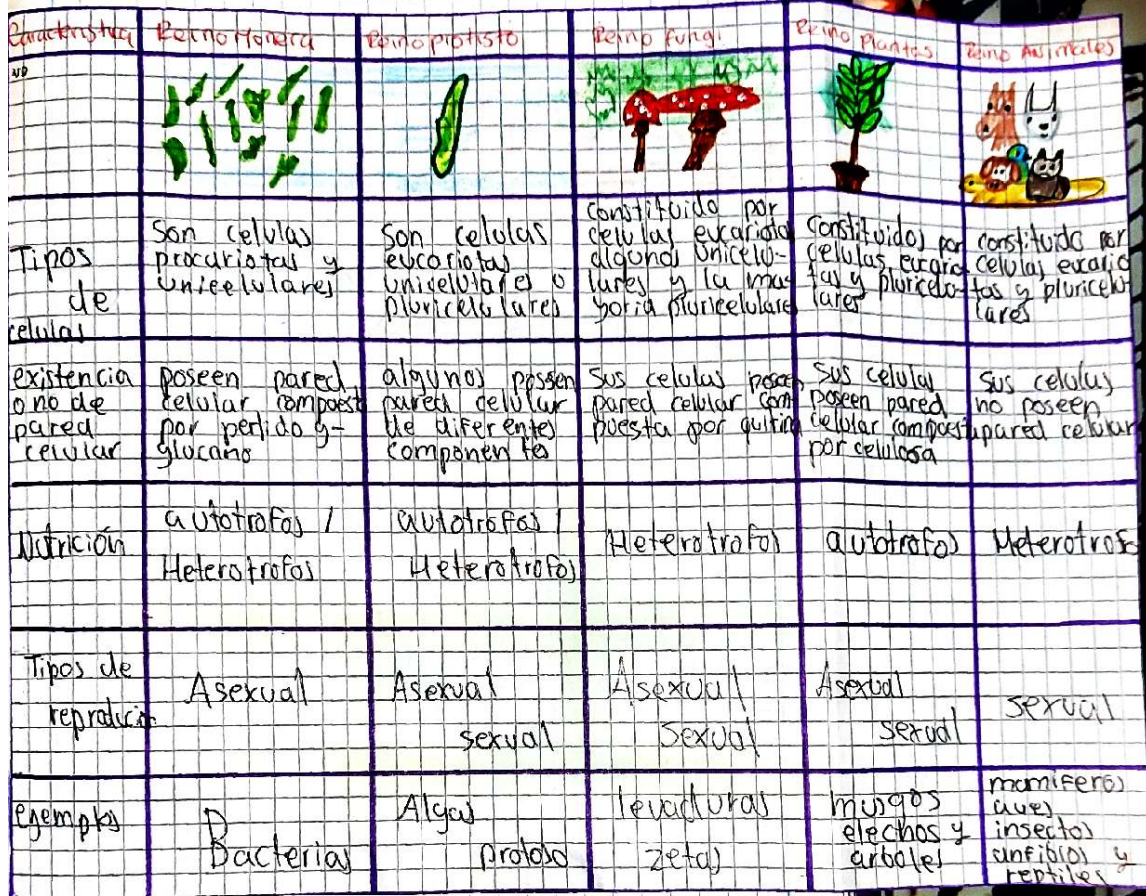 Caracteristica
Reino Monera
Reino protisto
Reino Fungi
Reino plantas
Reino Animales
Tipos
de
celulas
Son celulas
procariotas y
unicelulares
Son celulas
eucariotas
unicelulares o
pluricelulares
constituido por
celulas eucariota
algunos unicelu-
lares y la ma
yoria pluricelulare
constituidos por
celulas eucario
tas y pluricelu-
lares
constituido por
celulas eucario
tas y pluricelu
lares
existencia
o no de
pared
celular
poseen pared
celular compuest
por pertido y-
glucano
algunos possen
pared celular
de diferentes
componentes
sus celulas poseen
pared celular com
puesta por quitina
sus celulas
poseen pared
celular compuesta
por celulosa
sus celulas
no poseen
pared celular
Nutrición
autotrofos /
Heterotrofos
autotrofos /
Heterotrofos
Heterotrofos
autotrofos
Heterotrofo
Tipos de
reproducion
Asexual
Asexual
sexual
Asexual
sexual
Asexual
sexual
sexual
egemplos
Bacterias
Algas
protoso
levaduras
zetas
musgos
elechos y
arboles
mamiferos
aves
insectos
anfibios y
reptiles